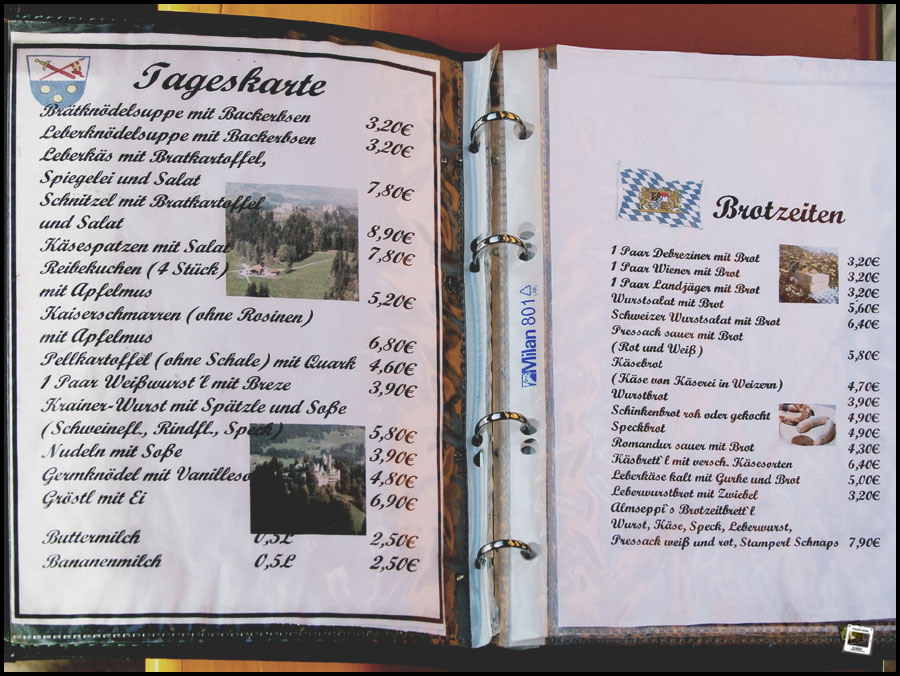 Tageskarte
Brätknödelsuppe mit Backerbsen 3,20€
Leberknödelsuppe mit Backerbsen 3,20€
Leberkäs mit Bratkartoffel,
Spiegelei und Salat 7,80€
Schnitzel mit Bratkartoffel
und Salat 8,90€
Käsespatzen mit Salat 7,80€
Reibekuchen (4 Stück)
mit Apfelmus 5,20€
Kaiserschmarren (ohne Rosinen)
mit Apfelmus 6,80€
Pellkartoffel (ohne Schale) mit Quark 4,60€
1 Paar Weißwurst`l mit Breze 3,90€
Krainer-Wurst mit Spätzle und Soße
(Schweinefl., Rindfl., Speck) 5,80€
Nudeln mit Soße 3,90€
Germknödel mit Vanilleso 4,80€
Gröstl mit Ei 6,90€
Buttermilch 0,5L 2,50€
Bananenmilch 0,5L 2,50€
Milan 801
Brotzeiten
1 Paar Debreziner mit Brot 3,20€
1 Paar Wiener mit Brot 3,20€
1 Paar Landjäger mit Brot 3,20€
Wurstsalat mit Brot 5,60€
Schweizer Wurstsalat mit Brot 6,40€
Pressack sauer mit Brot
(Rot und Weiß) 5,80€
Käsebrot
(Käse von Käserei in Weizern) 4,70€
Wurstbrot 3,90€
Schinkenbrot roh oder gekocht 4,90€
Speckbrot 4,90€
Romandur sauer mit Brot 4,30€
Käsbrett`l mit versch. Käsesorten 6,40€
Leberkäse kalt mit Gurke und Brot 5,00€
Leberwurstbrot mit Zwiebel 3,20€
Almseppi`s Brotzeitbrett`l
Wurst, Käse, Speck, Leberwurst,
Pressack weiß und rot, Stamperl Schnaps 7,90€